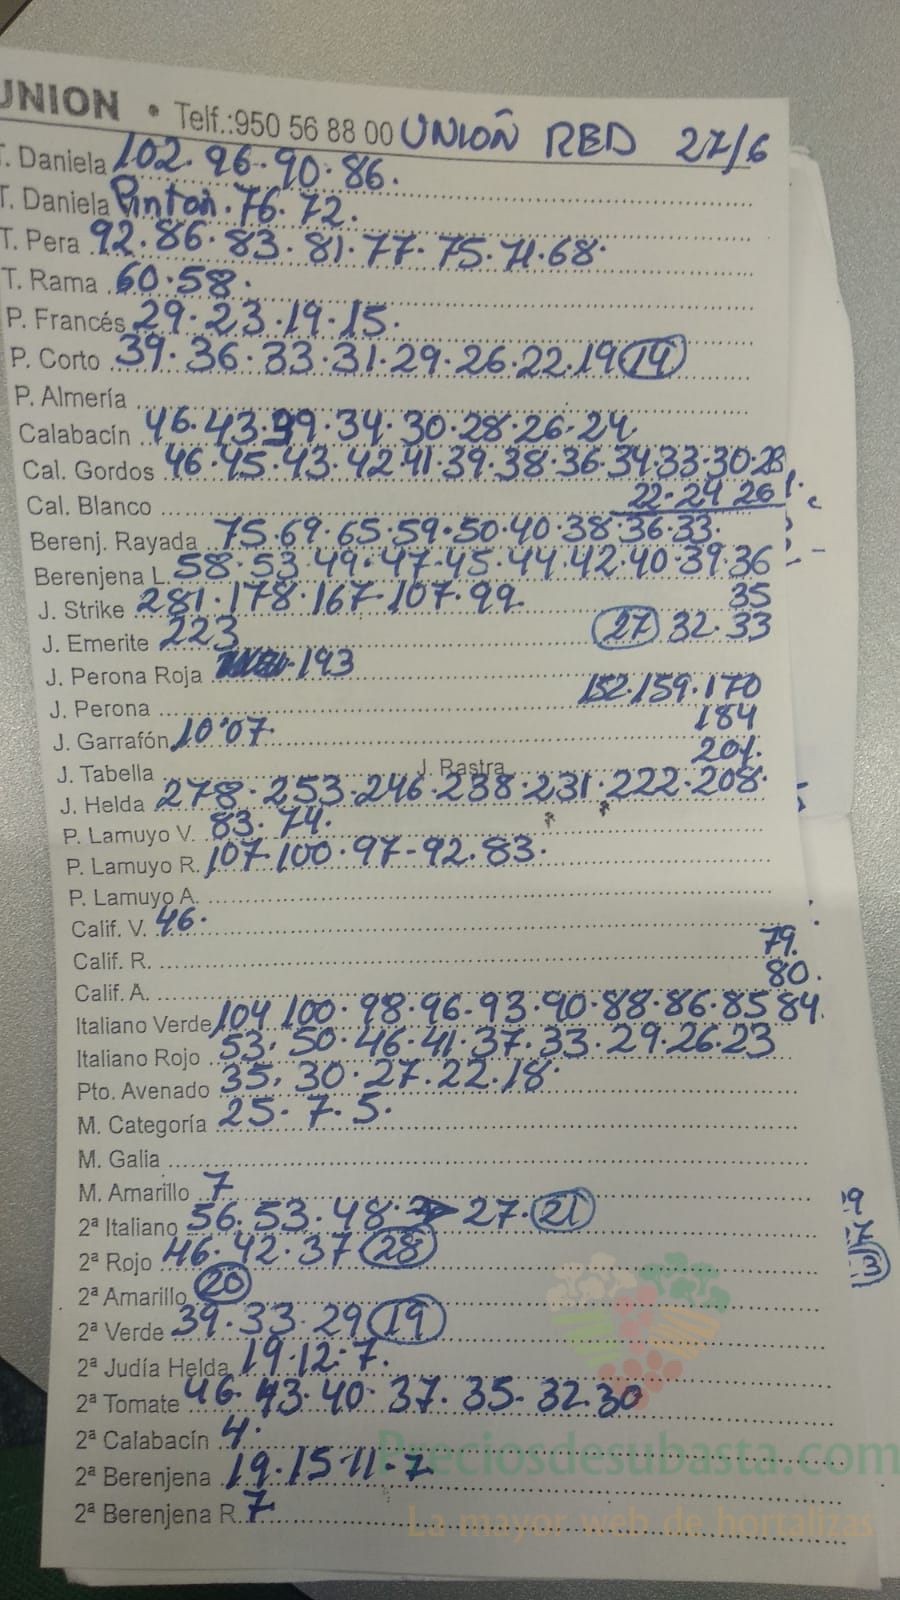 UNION • Telf.:950 56 88 00 UNION RED 27/6
T. Daniela 102. 96. 90. 86.
T. Daniela Pinton. 76. 72.
T. Pera 92. 86. 83. 81. 77. 75. 71. 68.
T. Rama 60. 58.
P. Francés 29. 23. 19. 15.
P. Corto 39. 36. 33. 31. 29. 26. 22. 19 14
P. Almería
Calabacín 46. 43. 39. 34. 30. 28. 26. 24
Cal. Gordos 46. 45. 43. 42. 41. 39. 38. 36. 34. 33. 30. 28
Cal. Blanco 22. 24 26
Berenj. Rayada 75. 69. 65. 59. 50. 40. 38. 36. 33.
Berenjena L. 58. 53. 49. 47. 45. 44. 42. 40. 39. 36
J. Strike 281. 178. 167. 107. 99. 35
J. Emerite 223 27 32. 33
J. Perona Roja 193
J. Perona 152. 159. 170
J. Garrafón 10'07. 184
J. Tabella J. Rastra 201.
J. Helda 278. 253. 246. 238. 231. 222. 208.
P. Lamuyo V. 83. 74.
P. Lamuyo R. 107. 100. 97. 92. 83.
P. Lamuyo A.
Calif. V. 46.
Calif. R. 79.
Calif. A. 80.
Italiano Verde 104 100. 98. 96. 93. 90. 88. 86. 85 84.
Italiano Rojo 53. 50. 46. 41. 37. 33. 29. 26. 23
Pto. Avenado 35. 30. 27. 22. 18.
M. Categoría 25. 7. 5.
M. Galia
M. Amarillo 7
2ª Italiano 56. 53. 48. 27. 21
2ª Rojo 46. 42. 37 28
2ª Amarillo 20
2ª Verde 39. 33. 29 19
2ª Judía Helda 19. 12. 7.
2ª Tomate 46. 43. 40. 37. 35. 32. 30
2ª Calabacín 4.
2ª Berenjena 19. 15 11. 7
2ª Berenjena R. 7
Preciosdesubasta.com
La mayor web de hortalizas